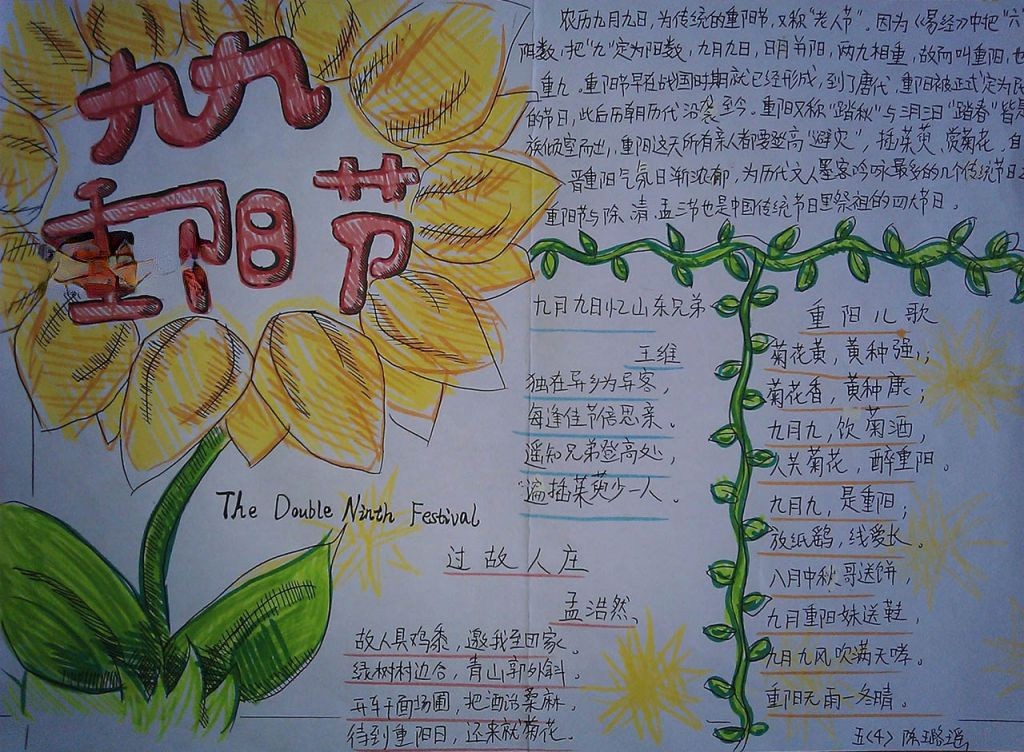 九九
重阳节
农历九月九日,为传统的重阳节,又称"老人节"。因为《易经》中把"六
阴数,把"九"定为阳数,九月九日,日月并阳,两九相重,故而叫重阳,也
重九。重阳节早在战国时期就已经形成,到了唐代,重阳被正式定为民
的节日,此后历朝历代沿袭至今。重阳又称"踏秋"与三月三日"踏春"皆是
族倾室而出,重阳这天所有亲人都要登高"避灾",插茱萸、赏菊花。自
晋重阳气氛日渐浓郁,为历代文人墨客吟咏最多的几个传统节日之
重阳节与除、清、盂三节也是中国传统节日里祭祖的四大节日。
九月九日忆山东兄弟
王维
独在异乡为异客,
每逢佳节倍思亲。
遥知兄弟登高处,
遍插茱萸少一人。
The Double Ninth Festival
过故人庄
孟浩然
故人具鸡黍,邀我至田家。
绿树村边合,青山郭外斜。
开车干面场圃,把酒话桑麻。
待到重阳日,还来就菊花。
重阳儿歌
菊花黄,黄种强;
菊花香,黄种康;
九月九,饮菊酒,
人共菊花,醉重阳。
九月九,是重阳;
放纸鹞,线爱长。
八月中秋,哥送饼,
九月重阳妹送鞋,
九月九风吹满天哮。
重阳无雨一冬晴。
五<4> 陈璐瑶